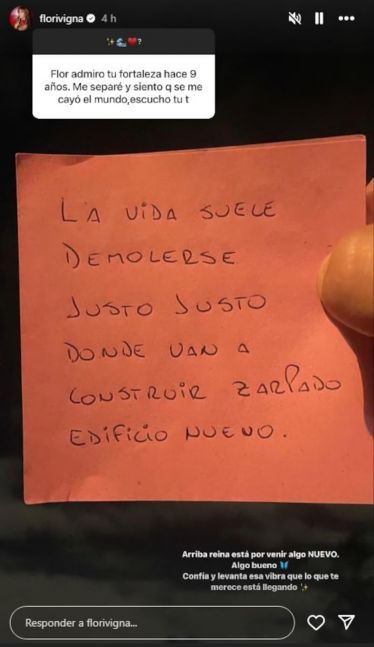 florivigna 4 h
✨🌊❤️?
Flor admiro tu fortaleza hace 9
años. Me separé y siento q se me
cayó el mundo,escucho tu t
LA VIDA SUELE
DEMOLERSE
JUSTO JUSTO
DONDE VAN A
CONSTRUIR ZARPADO
EDIFICIO NUEVO.
Arriba reina está por venir algo NUEVO.
Algo bueno 🦋
Confía y levanta esa vibra que lo que te
merece está llegando ✨
Responder a florivigna...